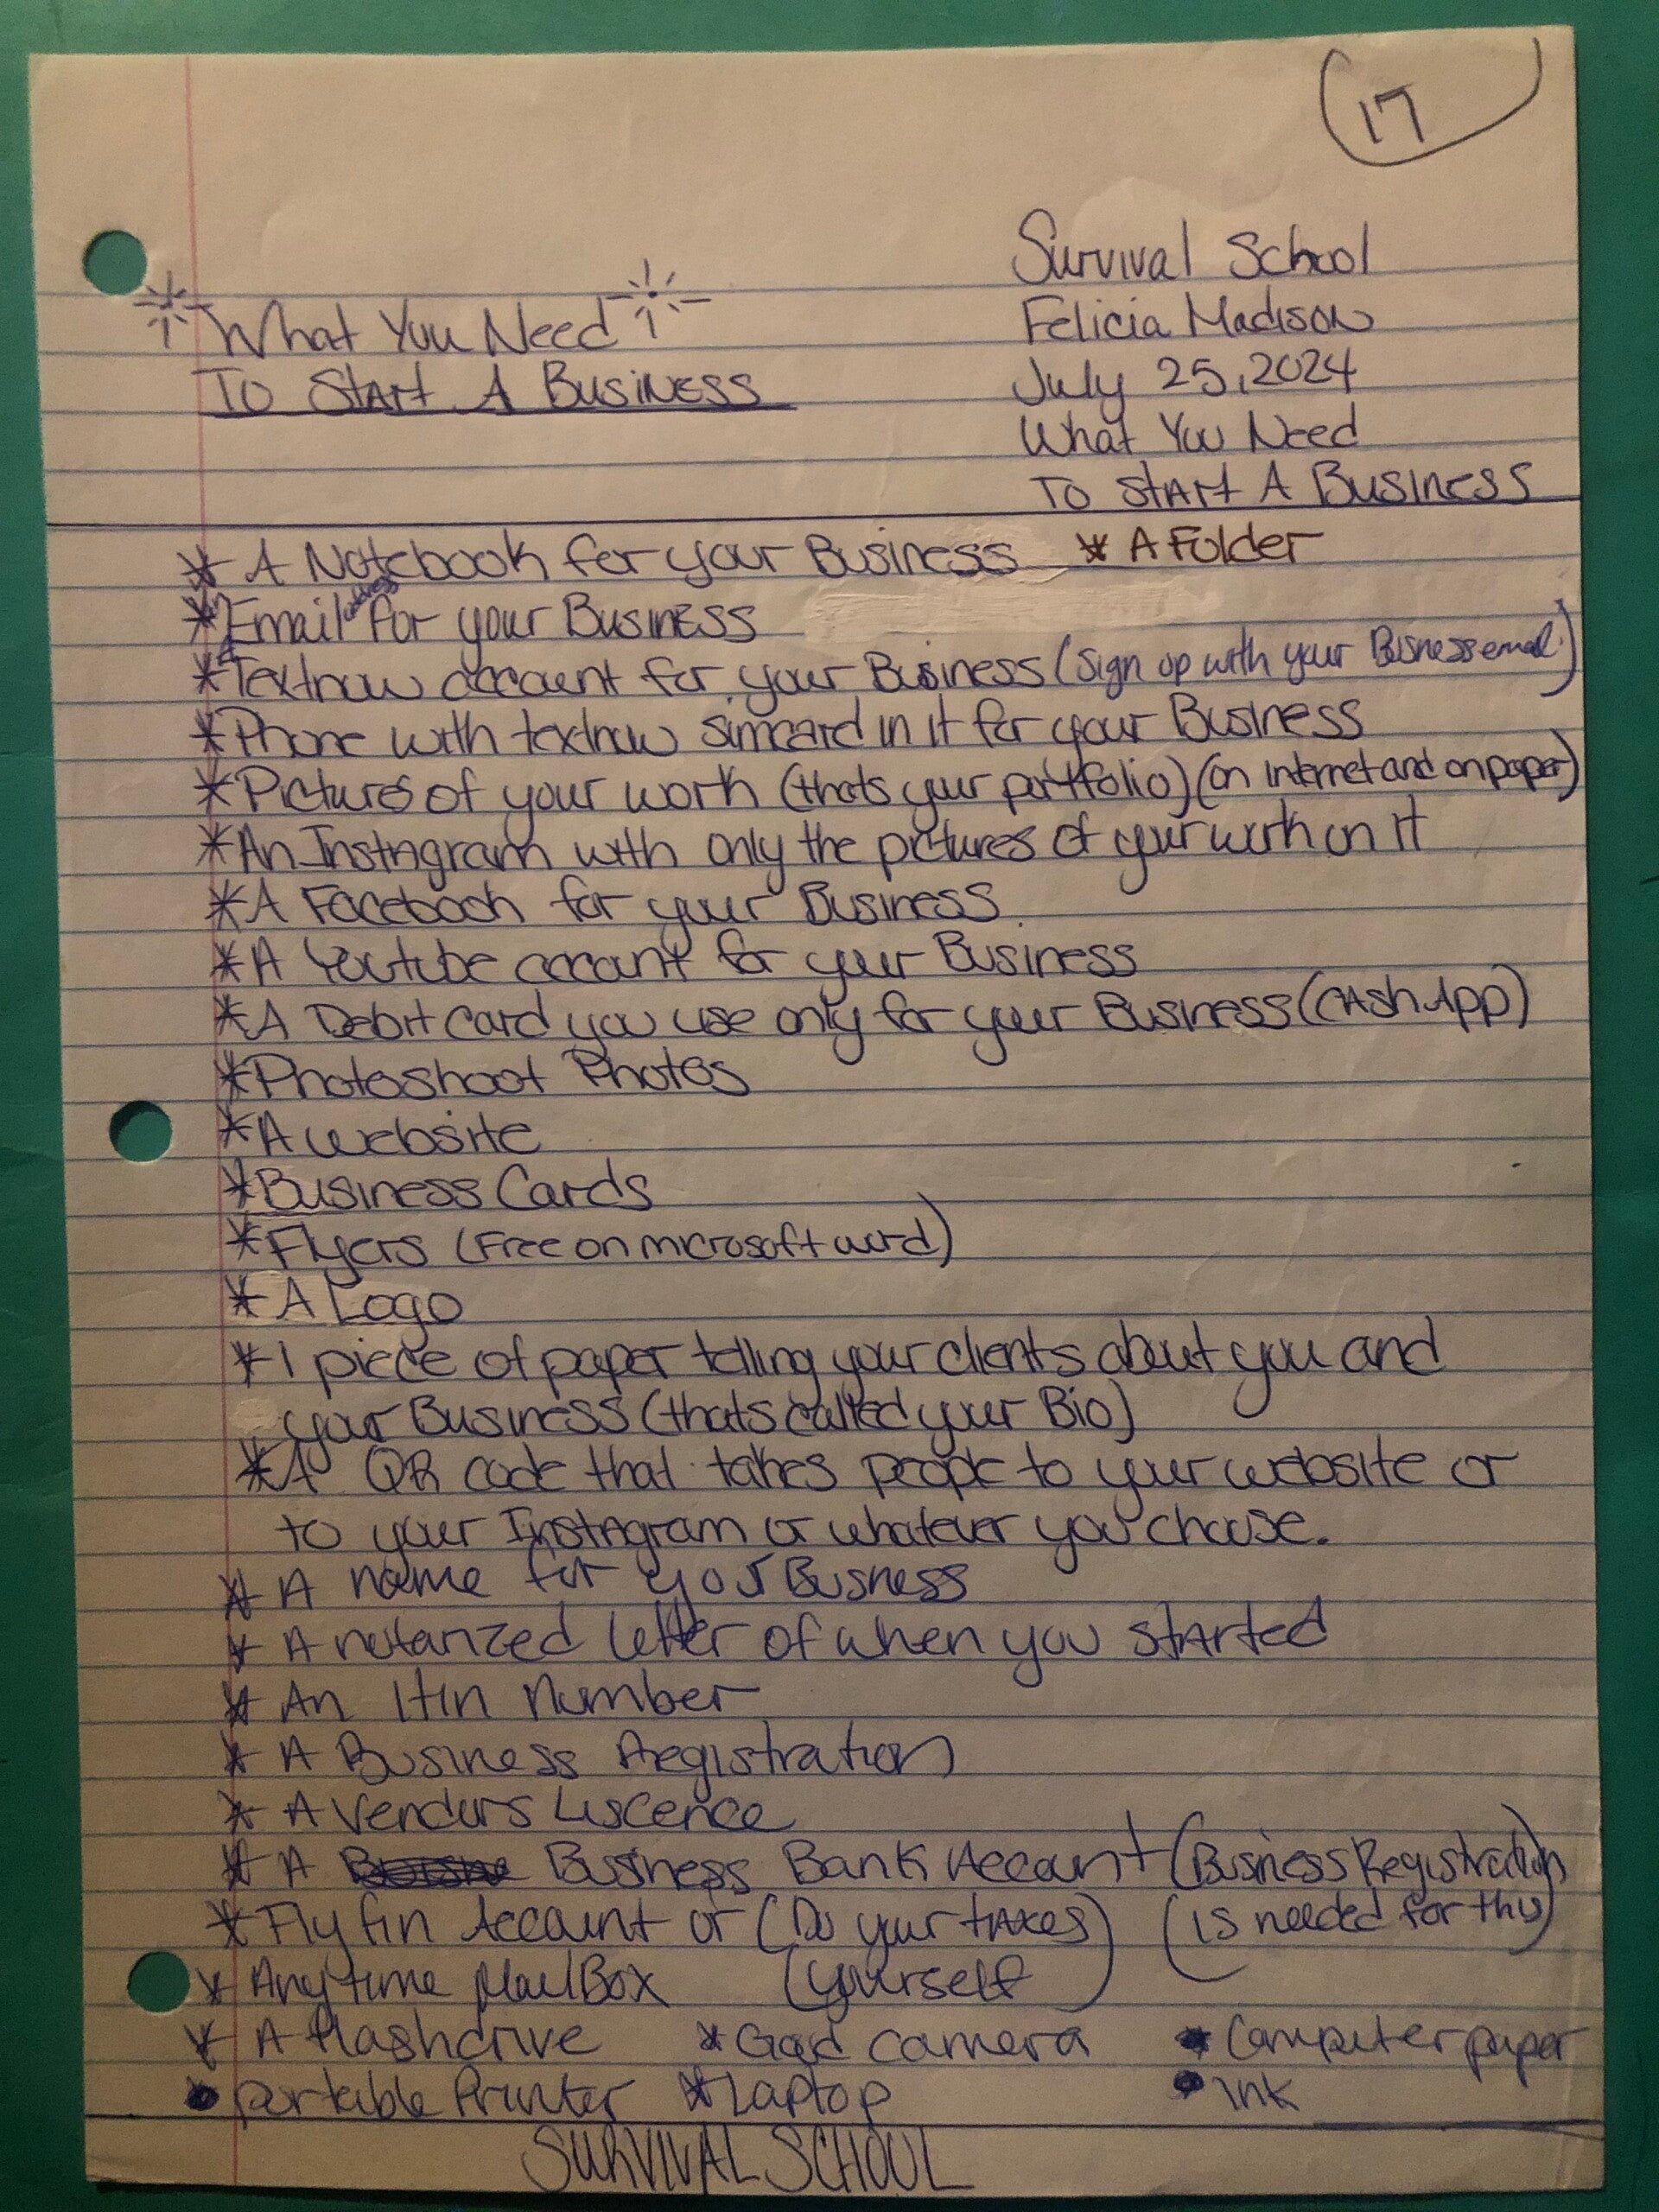 17
Survival School
Felicia Madison
July 25, 2024
What You Need
To Start A Business
What You Need
To Start A Business
* A Notebook for your Business * A Folder
* An Email address for your Business
* A Textnow account for your Business (sign up with your Business email)
* Phone with textnow simcard in it for your Business
* Pictures of your work (thats your portfolio) (on internet and on paper)
* An Instagram with only the pictures of your work on it
* A Facebook for your Business
* A Youtube account for your Business
* A Debit card you use only for your Business (Cash App)
* Photoshoot Photos
* A website
* Business Cards
* Flyers (Free on microsoft word)
* A Logo
* 1 piece of paper telling your clients about you and
your Business (thats called your Bio)
* A QR code that takes people to your website or
to your Instagram or whatever you choose.
* A name for your Business
* A notarized letter of when you started
* An Itin Number
* A Business Registration
* A Vendors Liscence
* A Business Bank Account (Business Registration
* Fly fin Account or (Do your taxes) (is needed for this)
* Anytime MailBox (yourself)
* A flashdrive * Good camera * Computer paper
• portable Printer * Laptop • ink
SURVIVAL SCHOOL